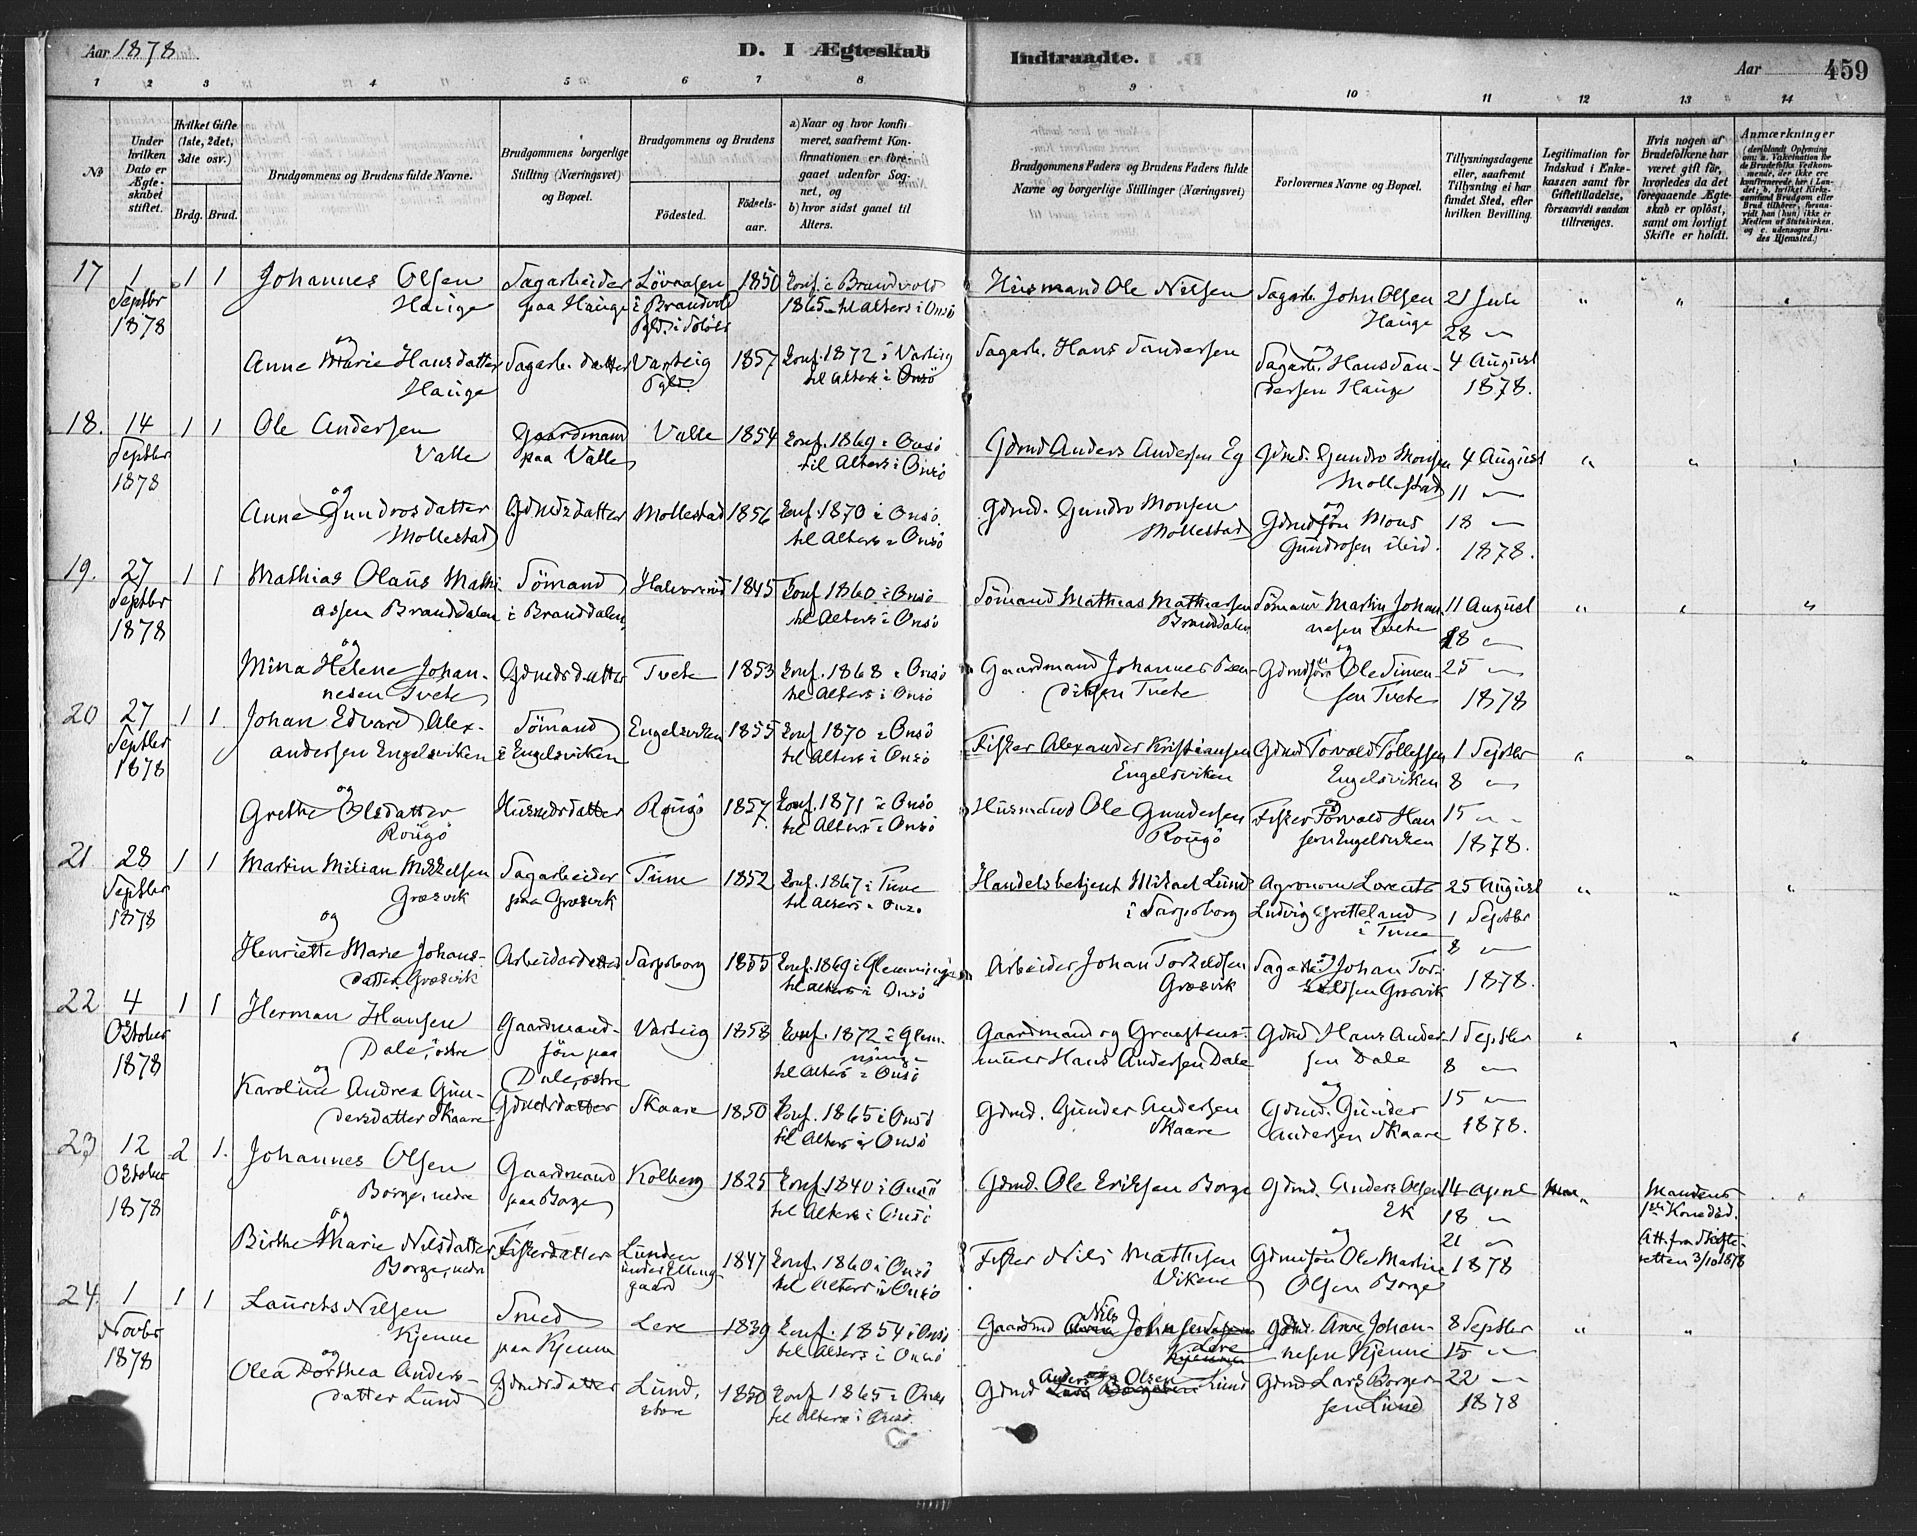 Aar 1878
D. I Ægteskab
Indtraadte.
Aar
459
1 2 3 4 5 6 7 8 9 10 11 12 13 14
No
Under hvilken Dato er Ægteskabet stiftet.
Hvilket Gifte (1ste, 2det, 3die osv.)
Brdg. Brud.
Brudgommens og Brudens fulde Navne.
Brudgommens borgerlige Stilling (Næringsvei) og Bopæl.
Brudgommens og Brudens
Fødested.
Fødselsaar.
a) Naar og hvor konfirmeret, saafremt Konfirmationen er foregaaet udenfor Sognet, og
b) hvor sidst gaaet til Alters.
Brudgommens Faders og Brudens Faders fulde Navne og borgerlige Stillinger (Næringsvei)
Forlovernes Navne og Bopæl.
Tillysningsdagene eller, saafremt Tillysning ei har fundet Sted, efter hvilken Bevilling.
Legitimation for Indskud i Enkekassen samt for Giftetilladelse, forsaavidt saadan tiltrænges.
Hvis nogen af Brudefolkene har været gift før, hvorledes da det foregaaende Ægteskab er opløst, samt om lovligt Skifte er holdt.
Anmærkninger
17
1 Septbr 1878
1 1
Johannes Olsen Hauge
og
Sagarbeider paa Hauge
1850
Konf. i Brandvold 1865 til Alters i Onsö
Husmand Ole Nilsen
Sagarb. John Olsen Hauge
og
21 Juli
28 "
4 August
1878.
Anne Marie Hansdatter Hauge
Sagarb. datter
Varteig Pgld.
1857
Konf. 1872 i Varteig til Alters i Onsö
Sagarb. Hans Sandersen
Sagarb. Hans Sandersen Hauge
18.
14 Septbr 1878
1 1
Ole Andersen Valle
og
Gaardmand paa Valle
Valle
1854
Konf. 1869 i Onsö til Alters i Onsö
Gdmd Anders Andersen Eg
Gdmd. Gundro Monsen Mollestad
og
4 August
11 "
18 "
1878.
Anne Gundrosdatter Mollestad
Gdmdsdatter
Mollestad
1856
Konf. 1870 i Onsö. til Alters i Onsö
Gdmd. Gundro Monsen Mollestad
Gdmdsön Mons Gundrosen ibid.
19.
27 Septbr 1878
1 1
Mathias Olaus Mathiassen Branddalen
og
Sömand i Branddalen
Halvorsrød
1845
Konf. 1860 i Onsö til Alters i Onsö
Sömand Mathias Mathiassen Branddalen
Sömand Martin Johannesen Tvete
og
11 August
18 "
25 "
1878
Mina Helene Johannesen Tvete
Gdmdsdatter
Tvete
1853
Konf. 1868 i Onsö til Alters i Onsö
Gaardmand Johannes
Tvete
Gdmdsön Ole Simensen Tvete
20
27 Septbr 1878
1 1.
Johan Edvard Alexandersen Engelsviken
og
Sömand i Engelsviken
Engelsviken
1855
Konf. 1870 i Onsö til Alters i Onsö
Fisker Alexander Kristiansen Engelsviken
Gdmd Torvald Tollefsen Engelsviken
og
1 Septbr
8 "
15 "
1878.
Grethe Olsdatter Rougö
Husmdsdatter
Rougö
1857.
Konf. 1871 i Onsö til Alters i Onsö
Husmand Ole Gundersen Rougö
Fisker Torvald Hansen Engelsviken
21
28 Septbr 1878
1 1
Martin Milian Mikkelsen Græsvik
og
Sagarbeider paa Græsvik
Tune
1852
Konf. 1867 i Tune til Alters i Onsö
Handelsbetjent Mikael Lund i Sarpsborg
Agronom Lorents Ludvig Gretteland i Tune
og
25 August
1 Septbr
8 "
1878.
Henriette Marie Johansdatter Græsvik
Arbeiderdatter
Sarpsborg
1855
Konf. 1869 i Glemminge til Alters i Onsö
Arbeider Johan Torkildsen Græsvik
Sagarb. Johan Torkildsen Græsvik
22
4 Oktober 1878
1 1
Herman Hansen Dale, östre
og
Gaardmandsön paa Dale, östre
Varteig
1858
Konf. 1872 i Glemminge til Alters i Onsö
Gaardmand og Graastensmurer Hans Andersen Dale
Gdmd Hans Andersen Dale
og
1 Septbr
8 "
15 "
1878.
Karoline Andrea Gundersdatter Skaare
Gdmdsdatter
Skaare
1850
Konf. 1865 i Onsö til Alters i Onsö
Gdmd. Gunder Andersen Skaare
Gdmd. Gunder Andersen Skaare
23
12 Oktober 1878
2 1.
Johannes Olsen Borge, nedre
og
Gaardmand paa Borge
Kolberg
1825
Konf. 1840 i Onsö til Alters i Onsö
Gdmd. Ole Eriksen Borge
Gdmd. Anders Olsen Ek
og
14 April
18 "
21 "
1878
Mandens 1ste Kone död.
Att. fra Skifteretten 3/10 1878
Birthe Marie Nilsdatter Borge, nedre
Fiskerdatter
Lunden under Ellingaard
1847
Konf. 1860 i Onsö til Alters i Onsö
Fisker Nils Mathisen Vikene
Gdmdsön Ole Martin Olsen Borge
24
1 Novbr 1878
1 1
Laurits Nilsen Kjenne
og
Smed paa Kjenne
Lere
1839
Konf. 1854 i Onsö til Alters i Onsö
Gaardmd Nils Johnsen Lere
Gdmd. Arne Johannesen Kjenne
8 Septbr
15 "
22 "
1878
Olea Dorthea Andersdatter Lund
Gdmdsdatter
Lund, store
1850
Konf 1865 i Onsö til Alters i Onsö.
Gdmd Anders Olsen Lund
Gdmd Lars Borgersen Lund